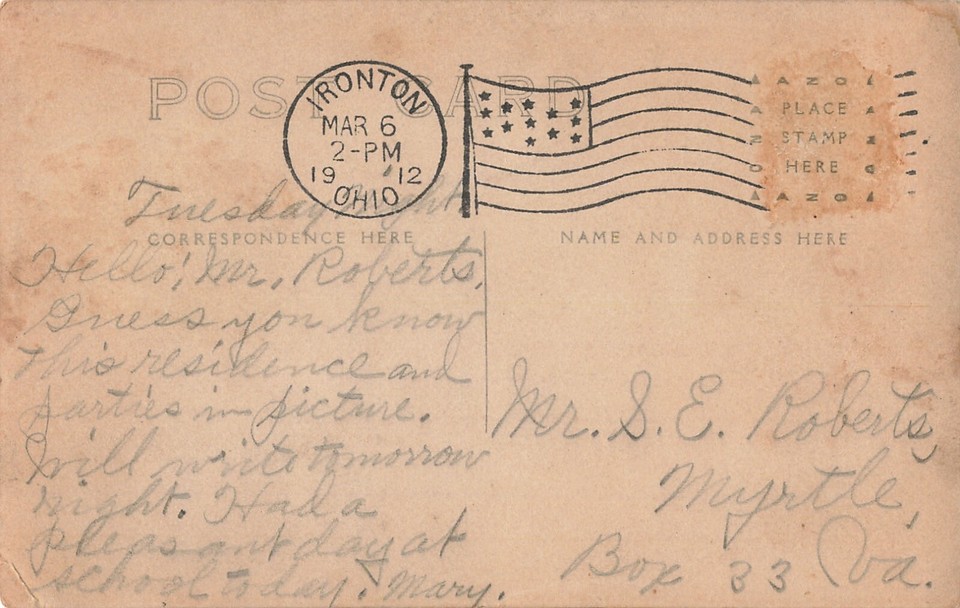 POST CARD
IRONTON
MAR 6
2-PM
19 12
OHIO
AZO
PLACE
STAMP
HERE
AZO
Tuesday Night
CORRESPONDENCE HERE
NAME AND ADDRESS HERE
Hello! Mr. Roberts,
Guess you know
this residence and
parties in picture.
Will write tomorrow
night. Had a
pleasant day at
school today. Mary.
Mr. S. E. Roberts,
Myrtle,
Box 33 Va.